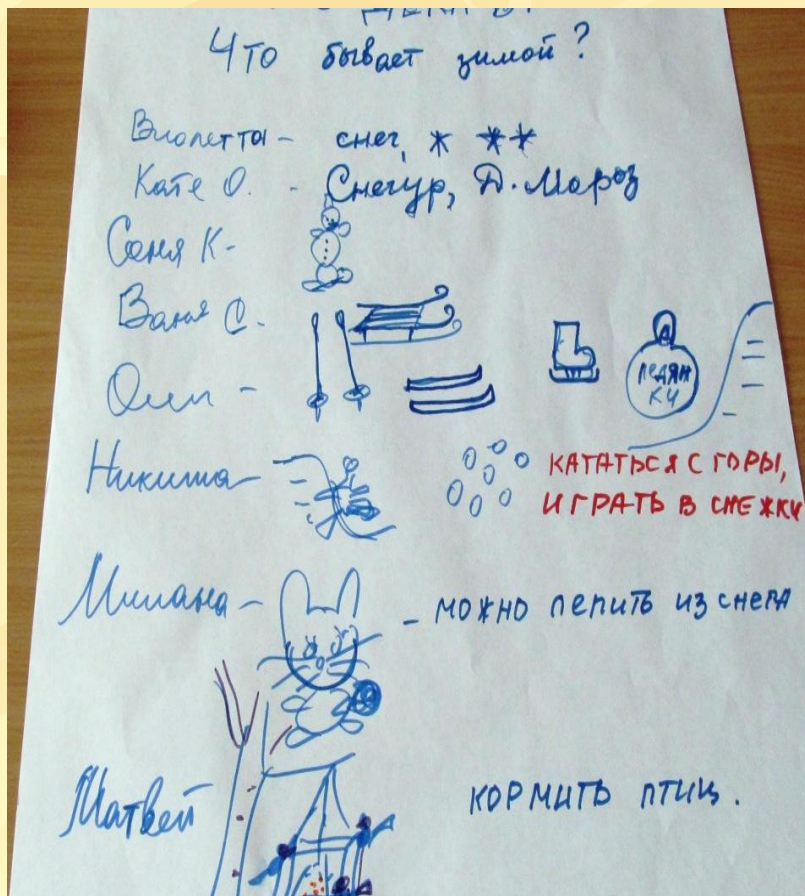 Что бывает зимой?
Виолетта - снег,
Кате О. - Снегур, Д. Мороз
Соня К-
Ваня С.
ЛЕДЯН
КИ
Никита-
КАТАТЬСЯ С ГОРЫ,
ИГРАТЬ В СНЕЖКИ
Милана - - МОЖНО ЛЕПИТЬ ИЗ СНЕГА
Матвей КОРМИТЬ ПТИЦ.